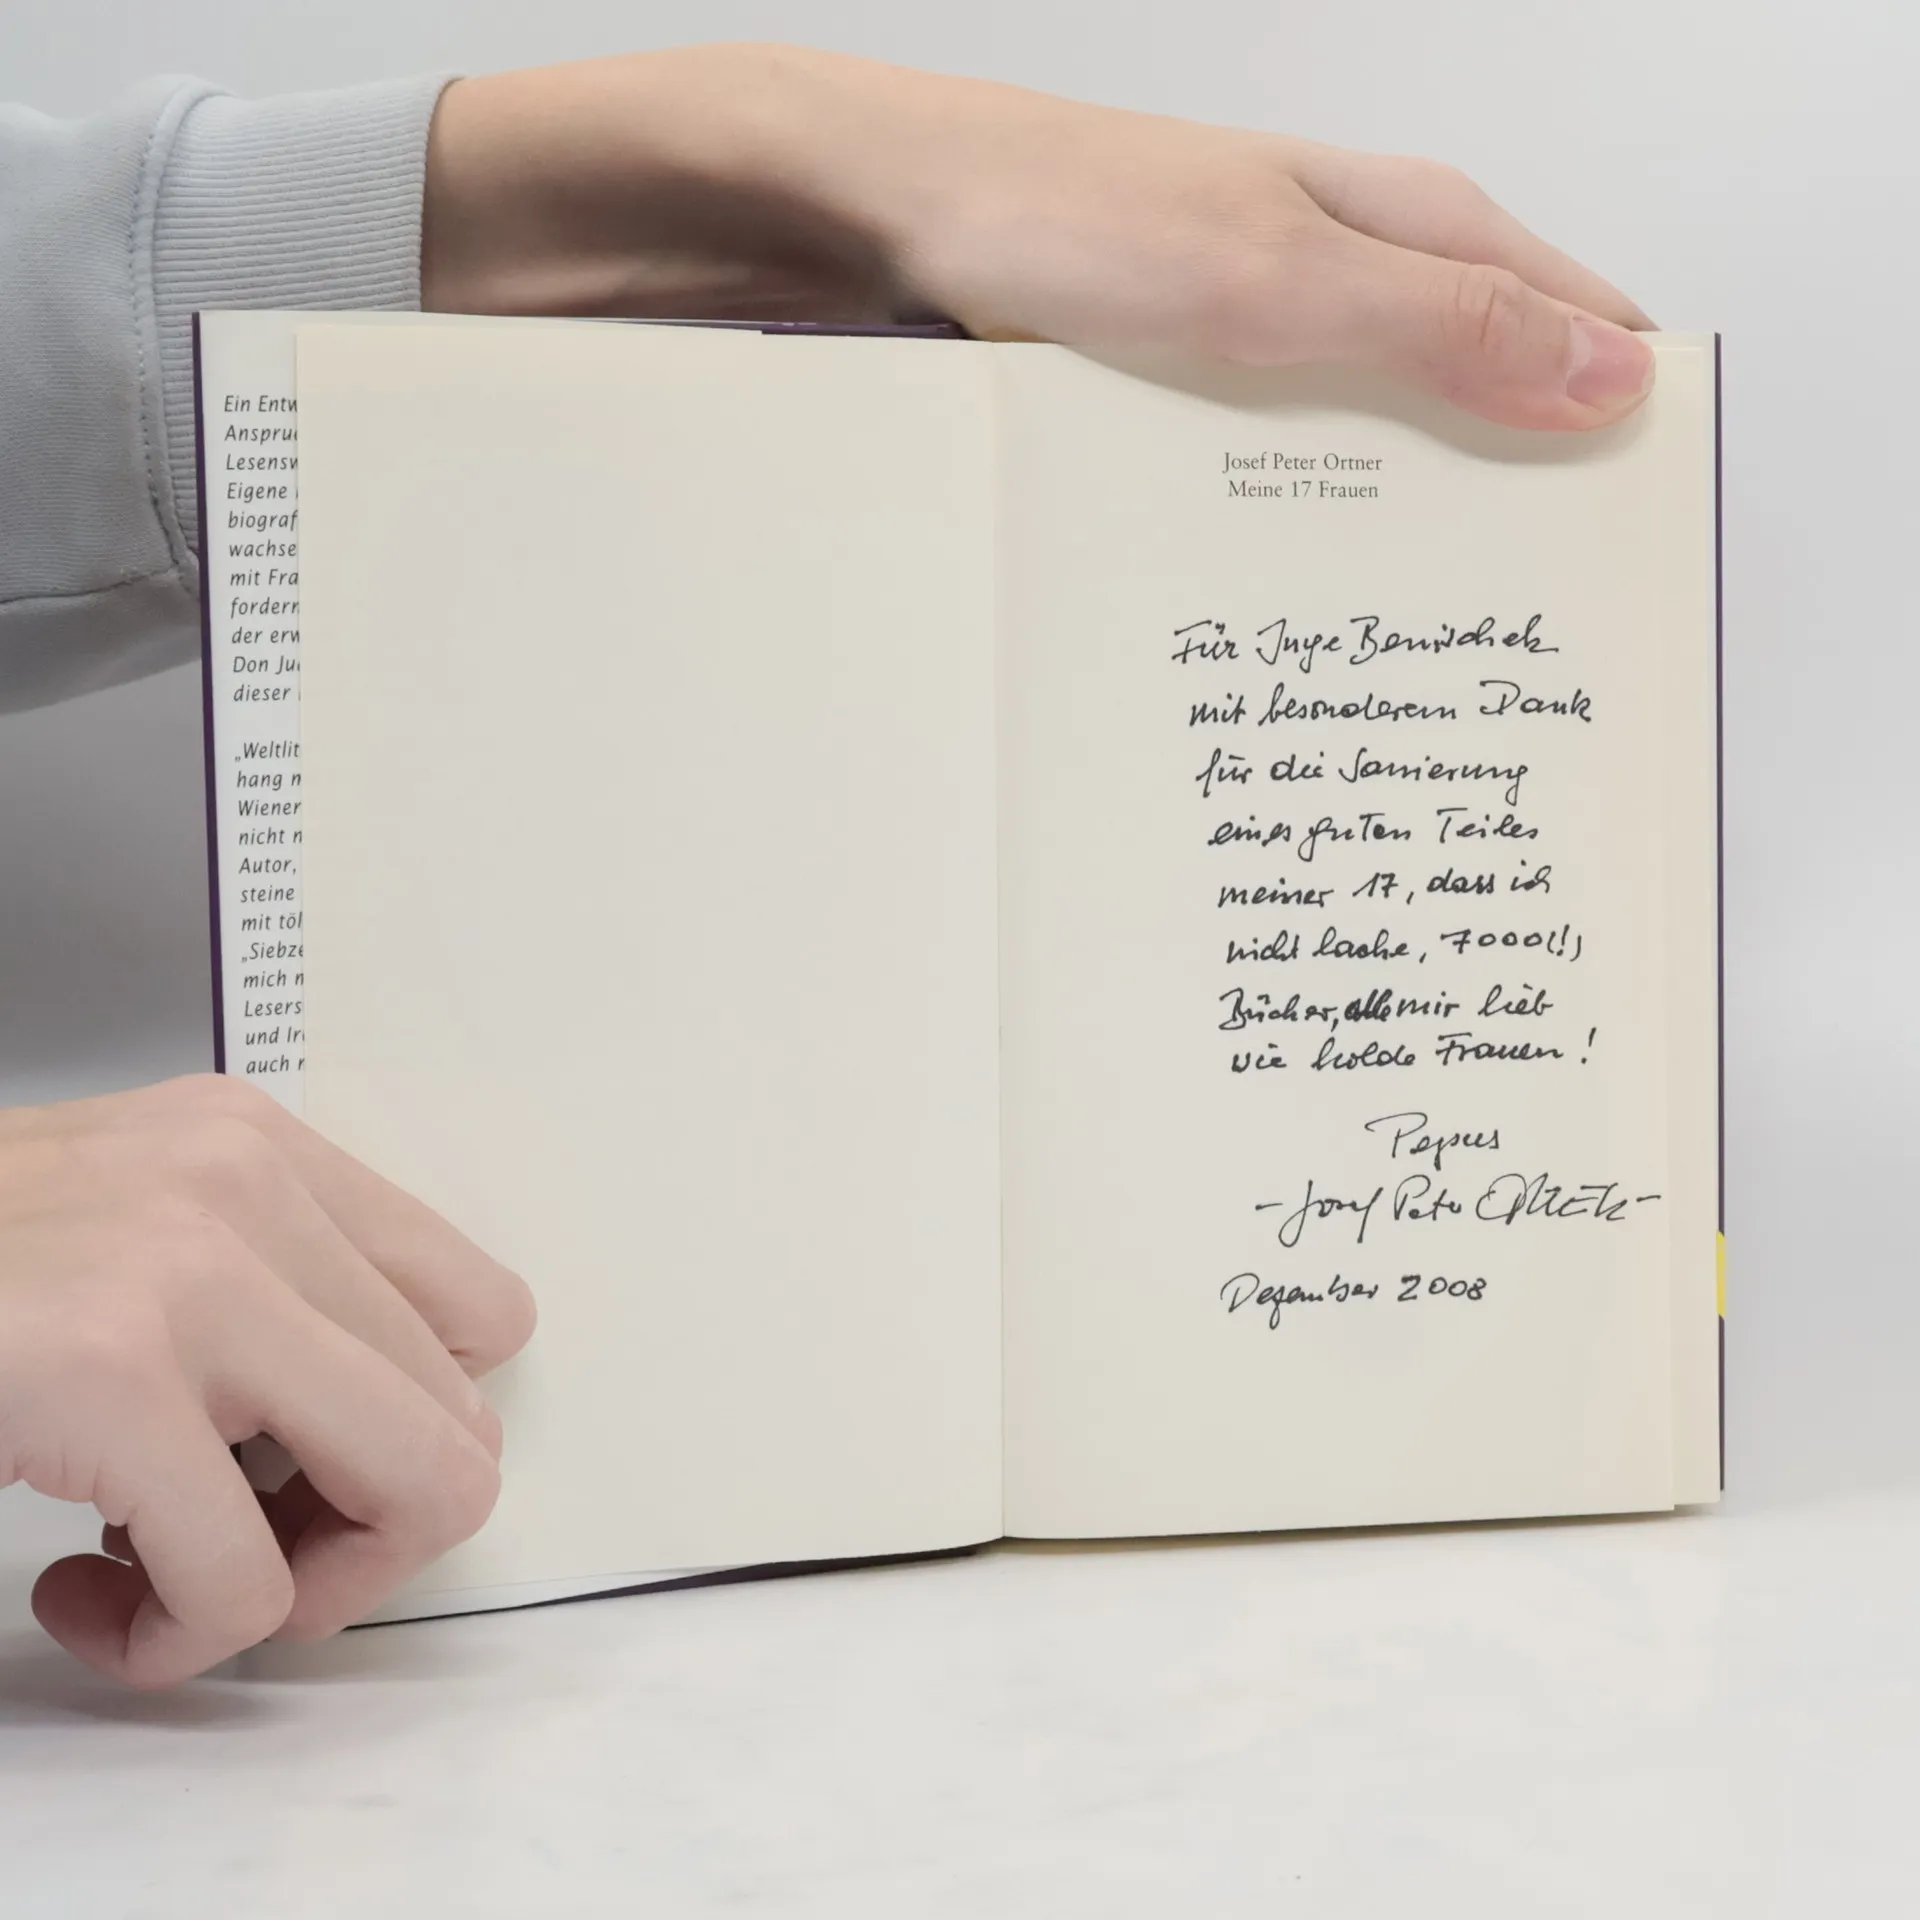 Ein Entw
Anspru
Lesensw
Eigene
biograf
wachse
mit Fra
fordern
der erw
Don Ju
dieser
„Weltlit
hang
Wiener
nicht
Autor,
steine
mit töl
„Siebze
mich
Lesers
und Ir
auch
Josef Peter Ortner
Meine 17 Frauen
Für Inge Benischek
mit besonderem Dank
für die Sanierung
eines guten Teiles
meiner 17, dass ich
nicht lache, 7000(!)
Bücher, alle mir lieb
wie holde Frauen!
– Josef Peter Ortner –
Dezember 2008